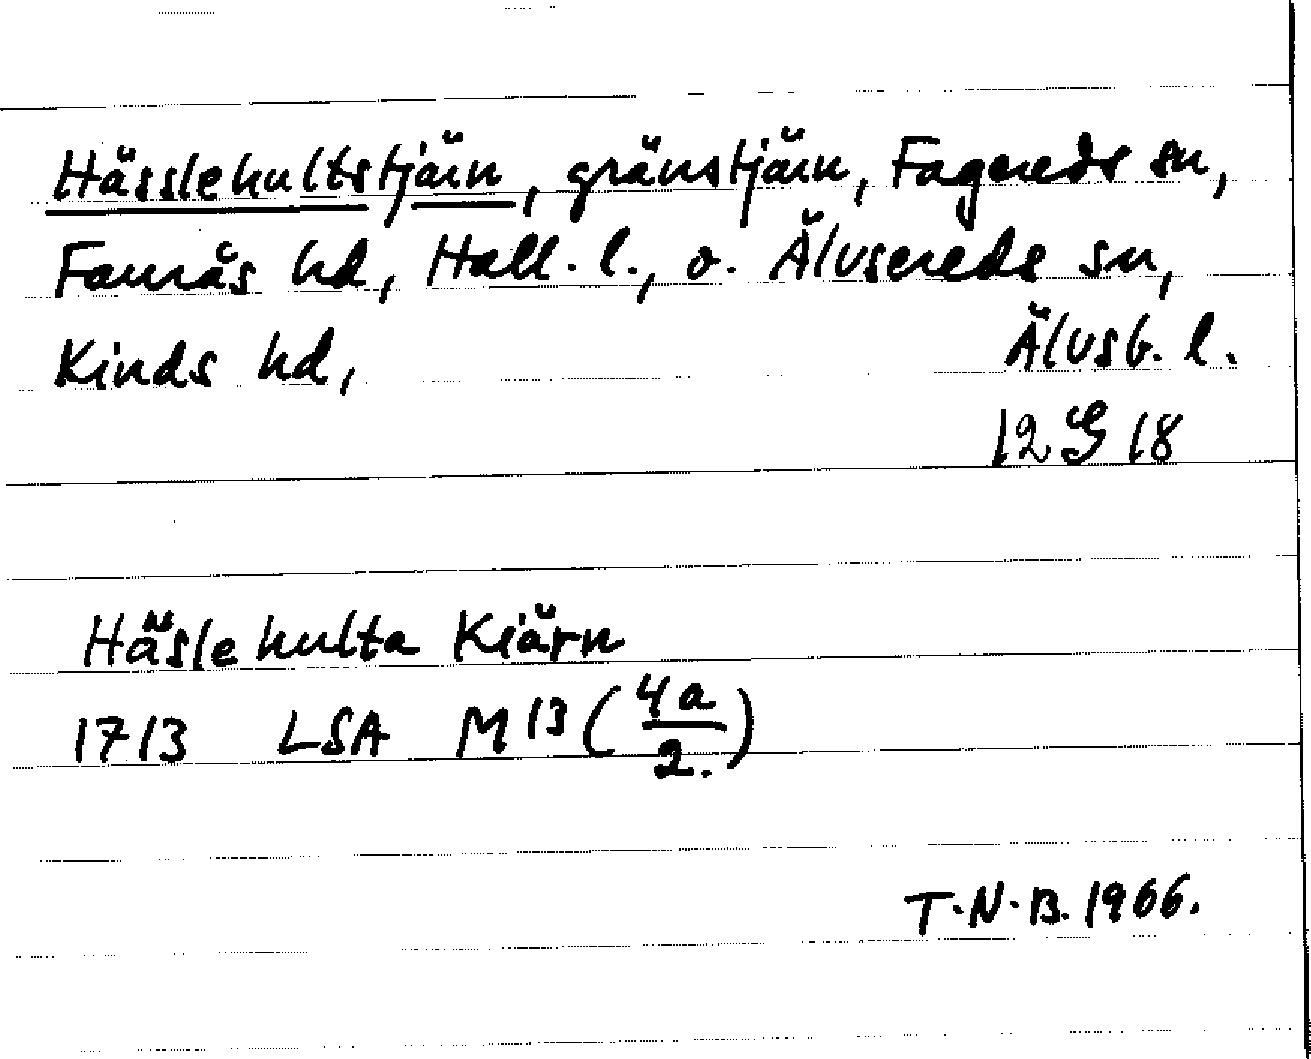 Hässlehultstjärn, gränstjärn, Fagereds sn,
Faurås hd, Hall. l., o. Älvsereds sn,
Kinds hd, Älvsb. l.
12 18
Häslehulta Kiärn
1713 LSA M13 (4a/2.)
T.N.B. 1966.